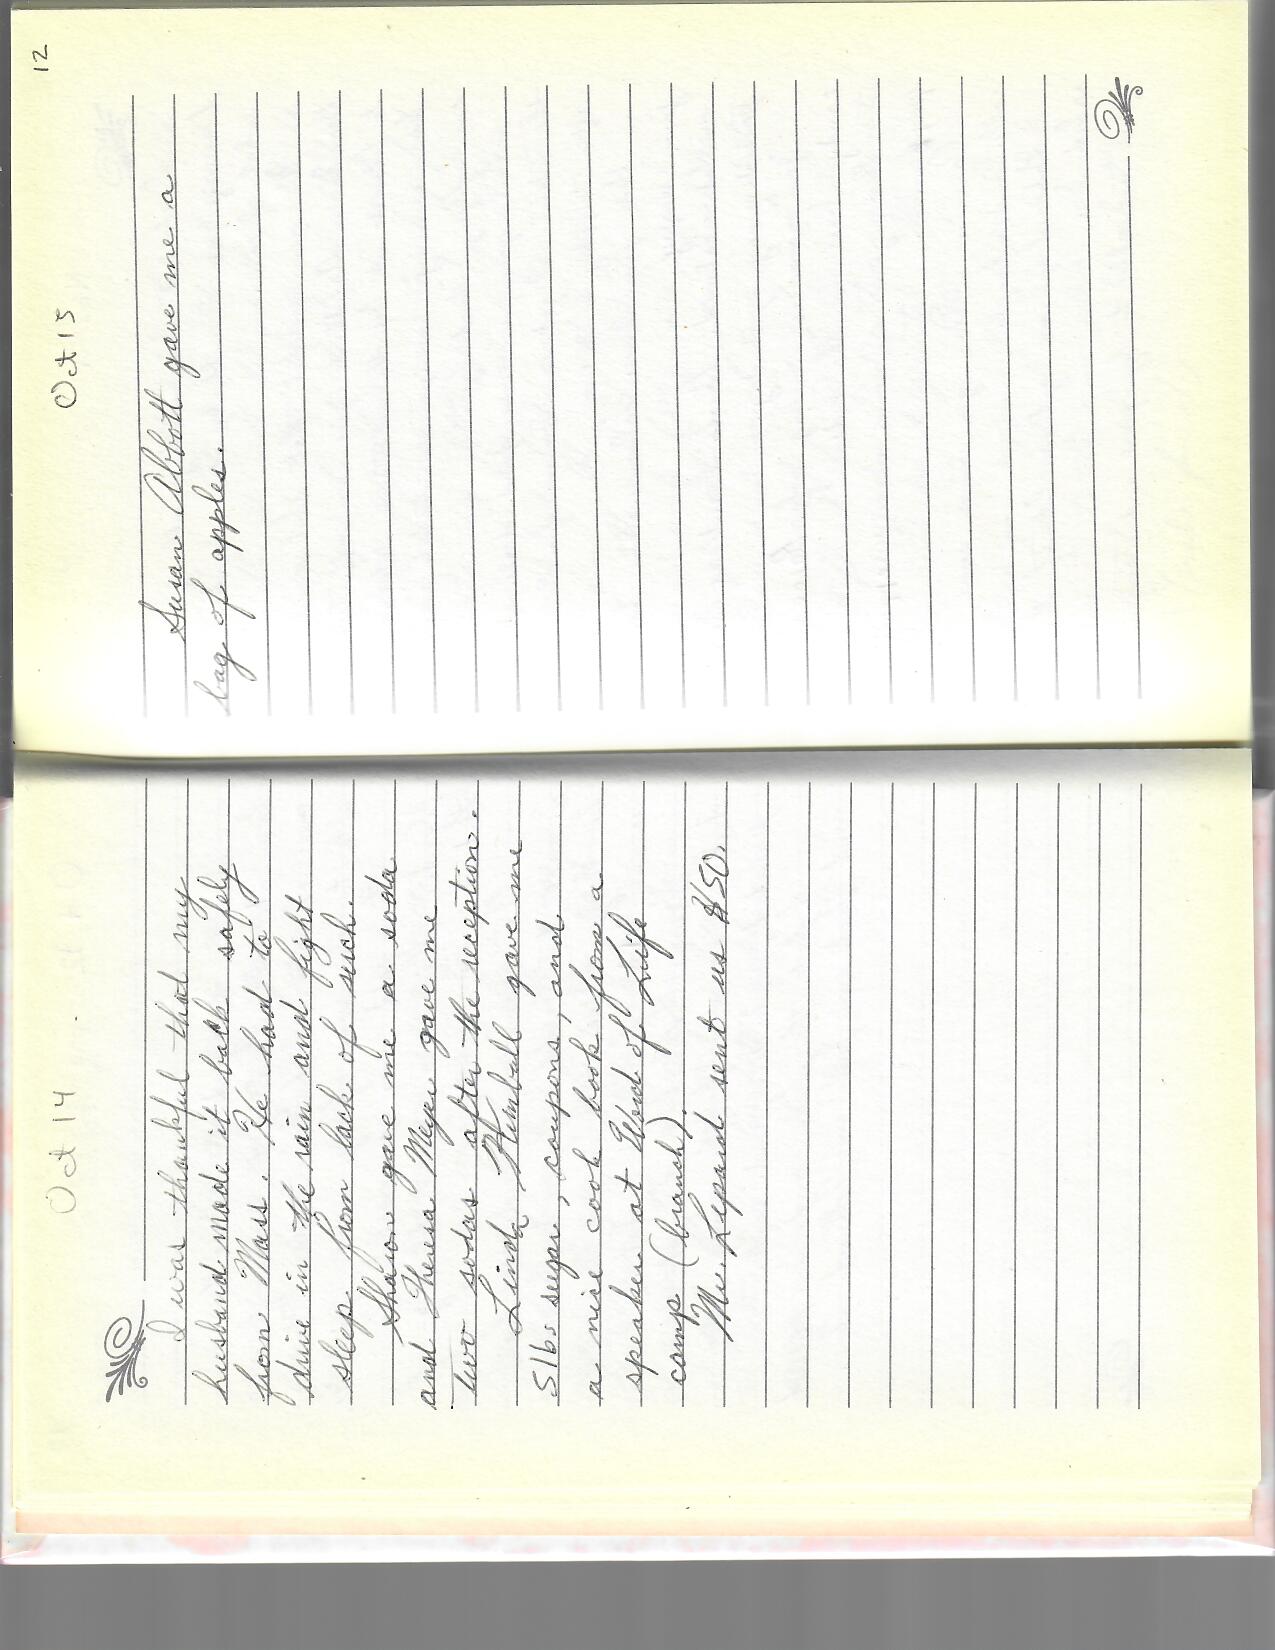 Oct 14
I was thankful that my
husband made it back safely
from Mass. He had to
drive in the rain and fight
sleep from lack of such.
Sharon gave me a soda
and Theresa Meyer gave me
two sodas after the reception.
Linda Kimball gave me
5 lbs sugar, coupons, and
a nice cook book from a
speaker at Word of Life
camp (branch).
Mr. Lepard sent us $50.
12
Oct 15
Susan Abbott gave me a
bag of apples.